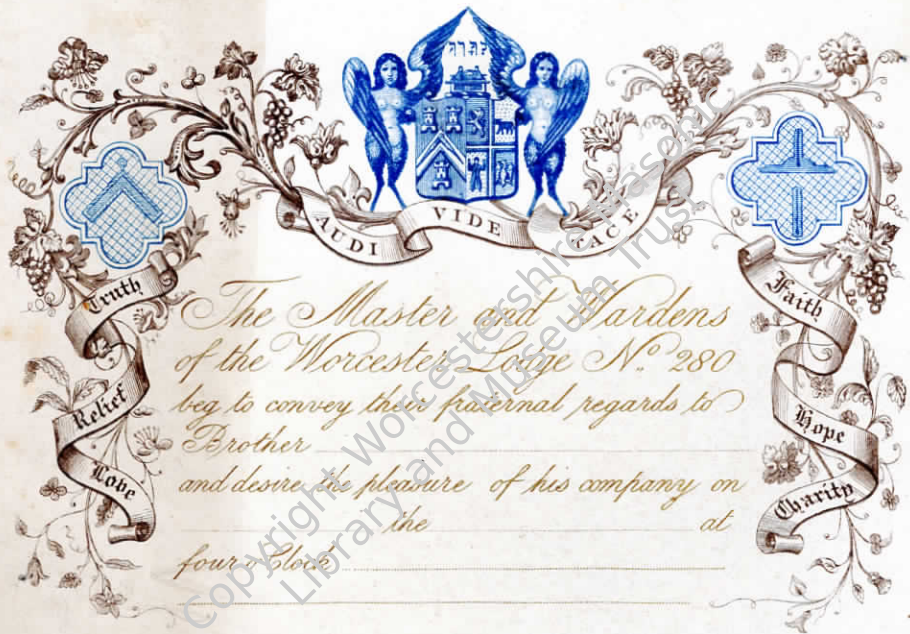 AUDI VIDE TACE
Truth
Relief
Love
Faith
Hope
Charity
The Master and Wardens
of the Worcester Lodge No. 280
beg to convey their fraternal regards to
Brother
and desire the pleasure of his company on
the at
four o'Clock
Copyright Worcestershire Masonic
Library and Museum Trust